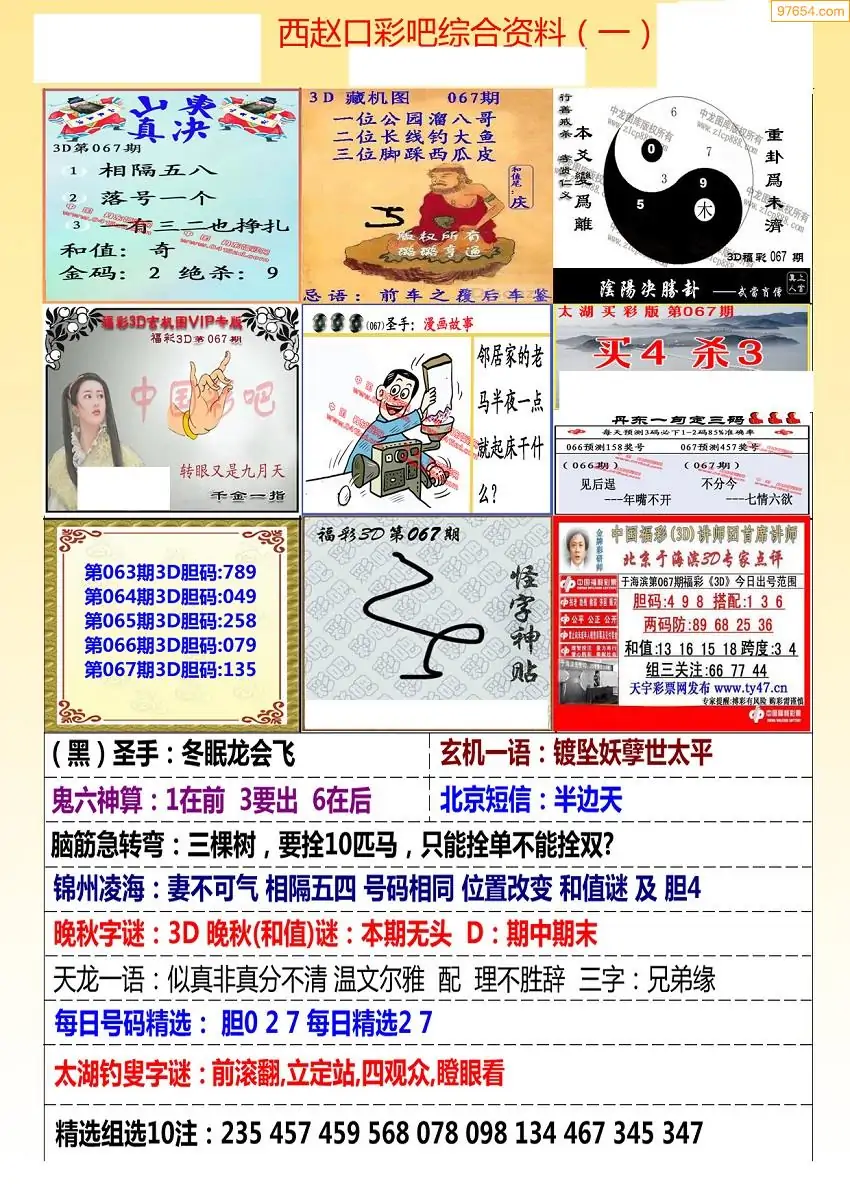 97654.com
西赵口彩吧综合资料（一）
山东
真决
3D第067期
1 相隔五八
2 落号一个
3 一有三二也挣扎
和值： 奇
金码： 2 绝杀： 9
3D 藏机图 067期
一位公园溜八哥
二位长线钓大鱼
三位脚踩西瓜皮
和值笔：庆
版权所有
璐璐亨通
忌语： 前车之覆后车鉴
行善戒杀 孝贤仁义
本爻變爲離
重卦爲未濟
中龙图库版权所有
www.zlcp888.com
6
0
7
3
9
5
木
3D福彩 067 期
陰陽決勝卦——武當肖僧
福彩3D玄机图VIP专版
福彩3D第067期
中国彩吧
转眼又是九月天
千金一指
(067)圣手：漫画故事
邻居家的老
马半夜一点
就起床干什
么？
太湖买彩版 第067期
买4 杀3
丹东一句定三码
每天预测3码必下1-2码85%准确率
066预测158奖号 067预测457奖号
（066期） （067期）
见后逞 不分今
----年嘴不开 ----七情六欲
第063期3D胆码:789
第064期3D胆码:049
第065期3D胆码:258
第066期3D胆码:079
第067期3D胆码:135
福彩3D第067期
怪字神贴
金牌彩研师
中国福彩(3D)讲师团首席讲师
北京于海滨3D专家点评
中国福利彩票
于海滨第067期福彩《3D》今日出号范围
胆码:4 9 8 搭配:1 3 6
公平 公正 公开
两码防:89 68 25 36
和值:13 16 15 18 跨度:3 4
组三关注:66 77 44
天宇彩票网发布 www.ty47.cn
专家提醒:搏彩有风险 购彩需谨慎
中国福利彩票
（黑）圣手：冬眠龙会飞
玄机一语：镀坠妖孽世太平
鬼六神算：1在前 3要出 6在后
北京短信：半边天
脑筋急转弯：三棵树，要拴10匹马，只能拴单不能拴双?
锦州凌海：妻不可气 相隔五四 号码相同 位置改变 和值谜 及 胆4
晚秋字谜：3D 晚秋(和值)谜：本期无头 D：期中期末
天龙一语：似真非真分不清 温文尔雅 配 理不胜辞 三字：兄弟缘
每日号码精选： 胆0 2 7 每日精选2 7
太湖钓叟字谜：前滚翻,立定站,四观众,瞪眼看
精选组选10注：235 457 459 568 078 098 134 467 345 347